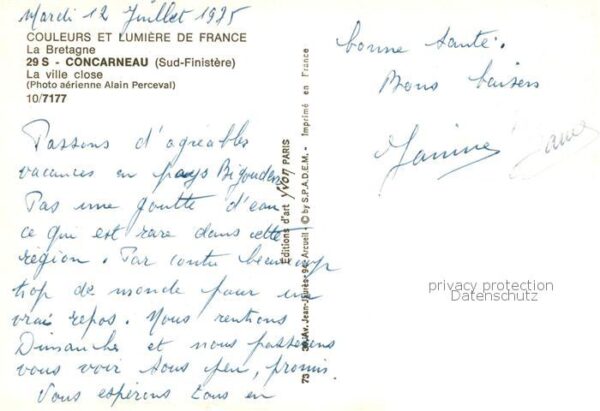 Mardi 12 Juillet 1975
COULEURS ET LUMIÈRE DE FRANCE
La Bretagne
29 S - CONCARNEAU (Sud-Finistère)
La ville close
(Photo aérienne Alain Perceval)
10/7177
Passons d'agréables
vacances en pays Bigouden
Pas une goutte d'eau
ce qui est rare dans cette
région. Par contre beaucoup
trop de monde pour un
vrai repos. Nous rentions
Dimanche et nous passerons
vous voir sous peu, promis.
Vous espérons tous en
Editions d'art yvon PARIS
73 Av. Jean-Jaurès - 94 Arcueil - © by S.P.A.D.E.M. - Imprimé en France
bonne santé.
Bons baisers
Janine
privacy protection
Datenschutz